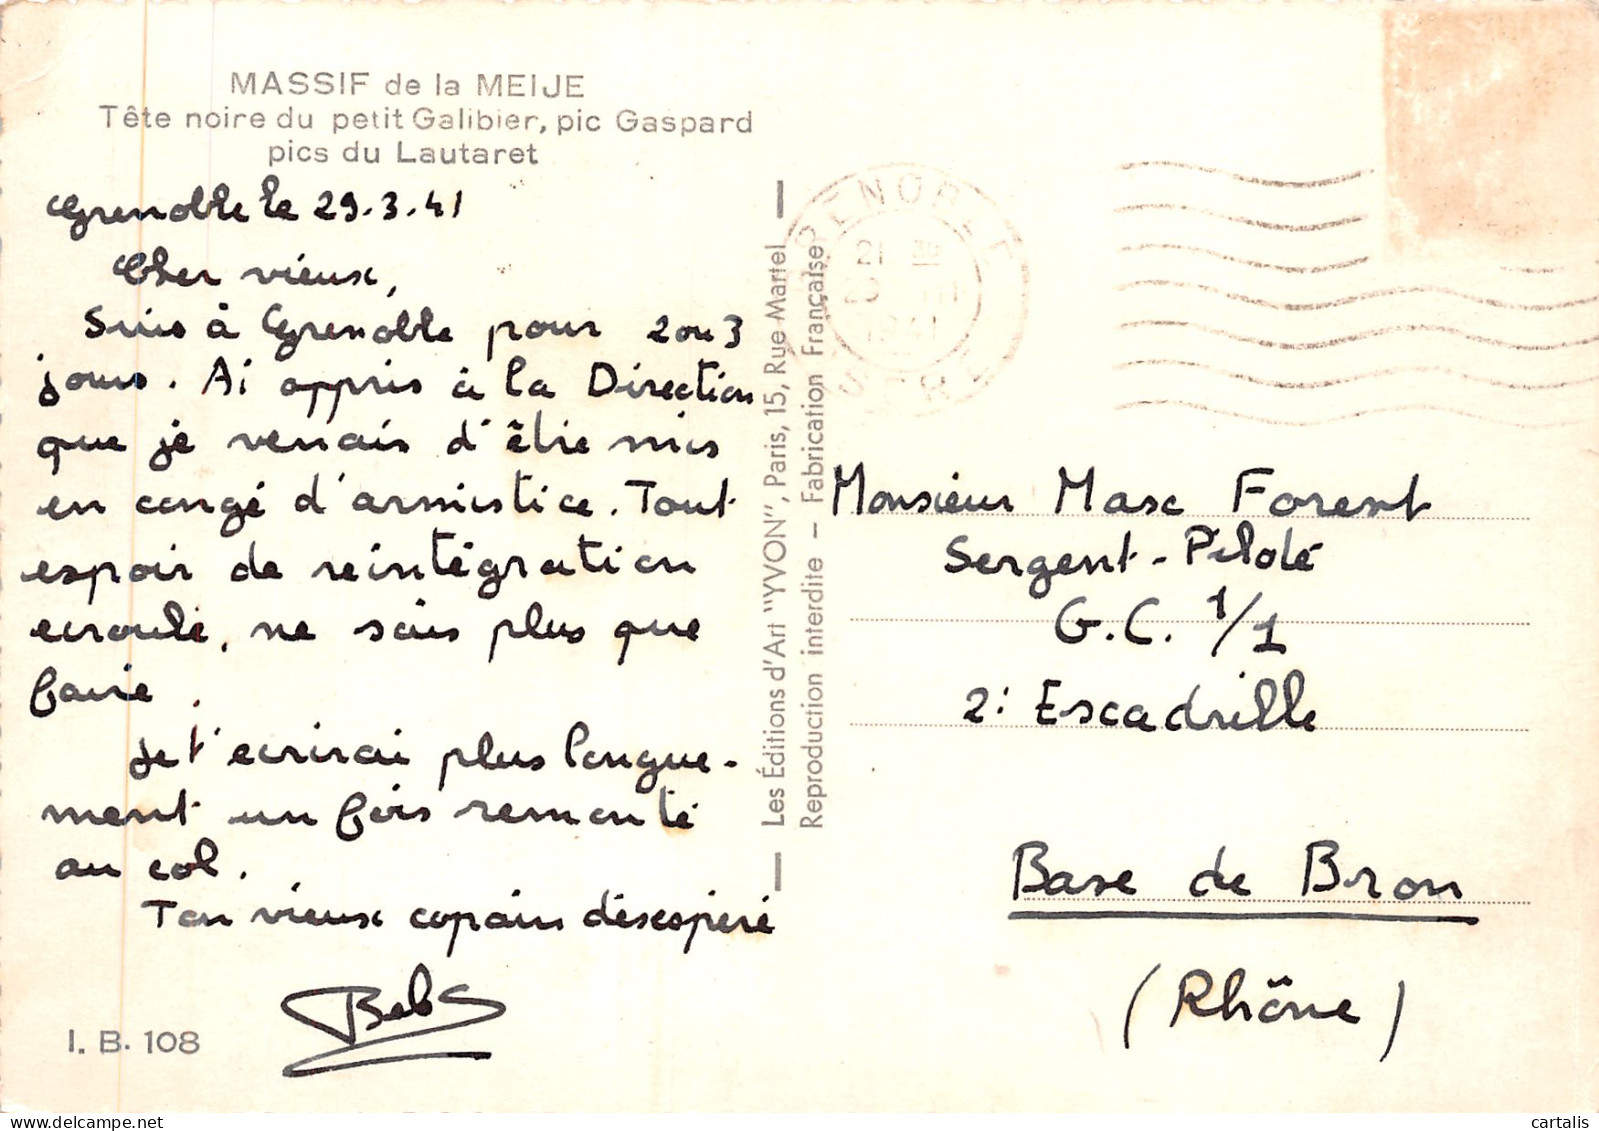 MASSIF de la MEIJE
Tête noire du petit Galibier, pic Gaspard
pics du Lautaret
Grenoble le 29.3.41
Cher vieux,
Suis à Grenoble pour 2 ou 3
jours. Ai appris à la Direction
que je venais d'être mis
en congé d'armistice. Tout
espoir de reintégration
ecroulé, ne sais plus que
faire.
Je t'ecrirai plus longue-
ment un fois remonté
au col.
Ton vieux copain désespéré
I. B. 108
Les Éditions d'Art "YVON", Paris, 15, Rue Martel
Reproduction interdite – Fabrication Française
GRENOBLE
21
1941
ISERE
Monsieur Marc Forest
Sergent-Pilote
G.C. 1/1
2: Escadrille
Base de Bron
(Rhône)
cartalis